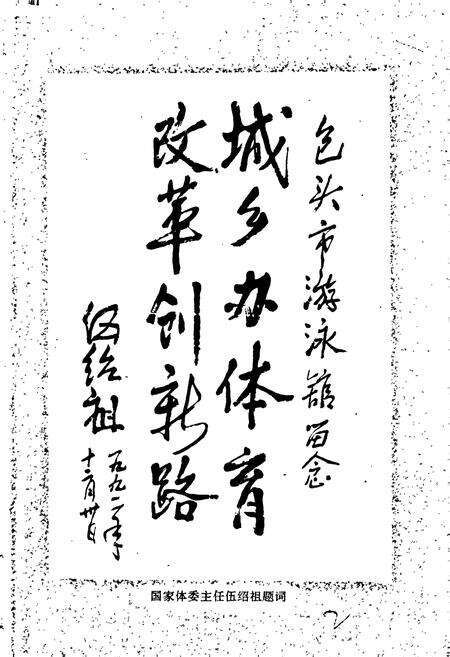 包头市游泳馆留念
城乡办体育
改革创新路
伍绍祖
一九九二年
十二月卅日
国家体委主任伍绍祖题词
2